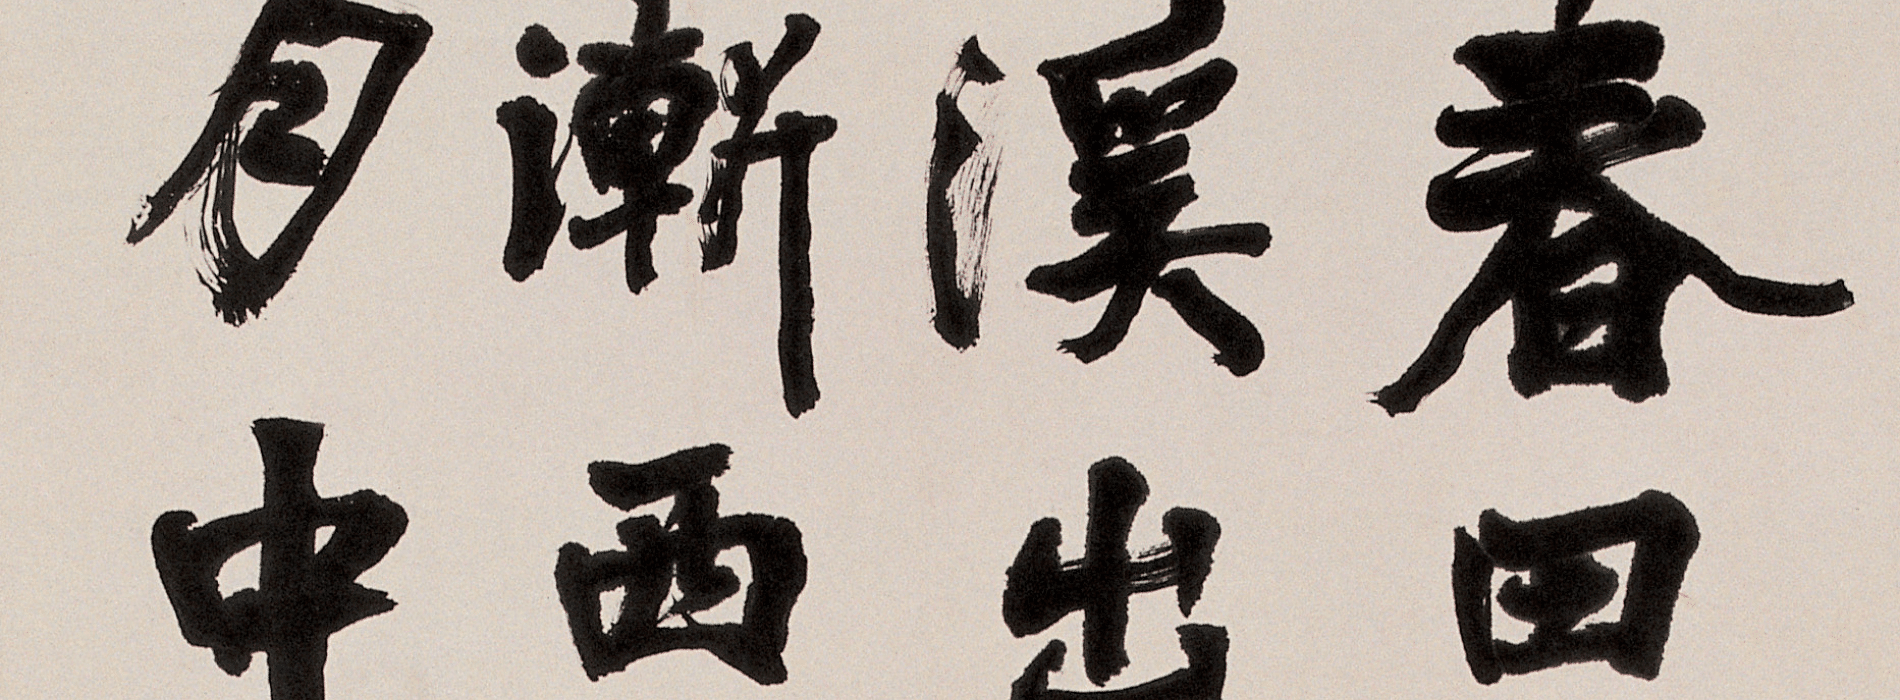 春田
溪出
漸西
月中